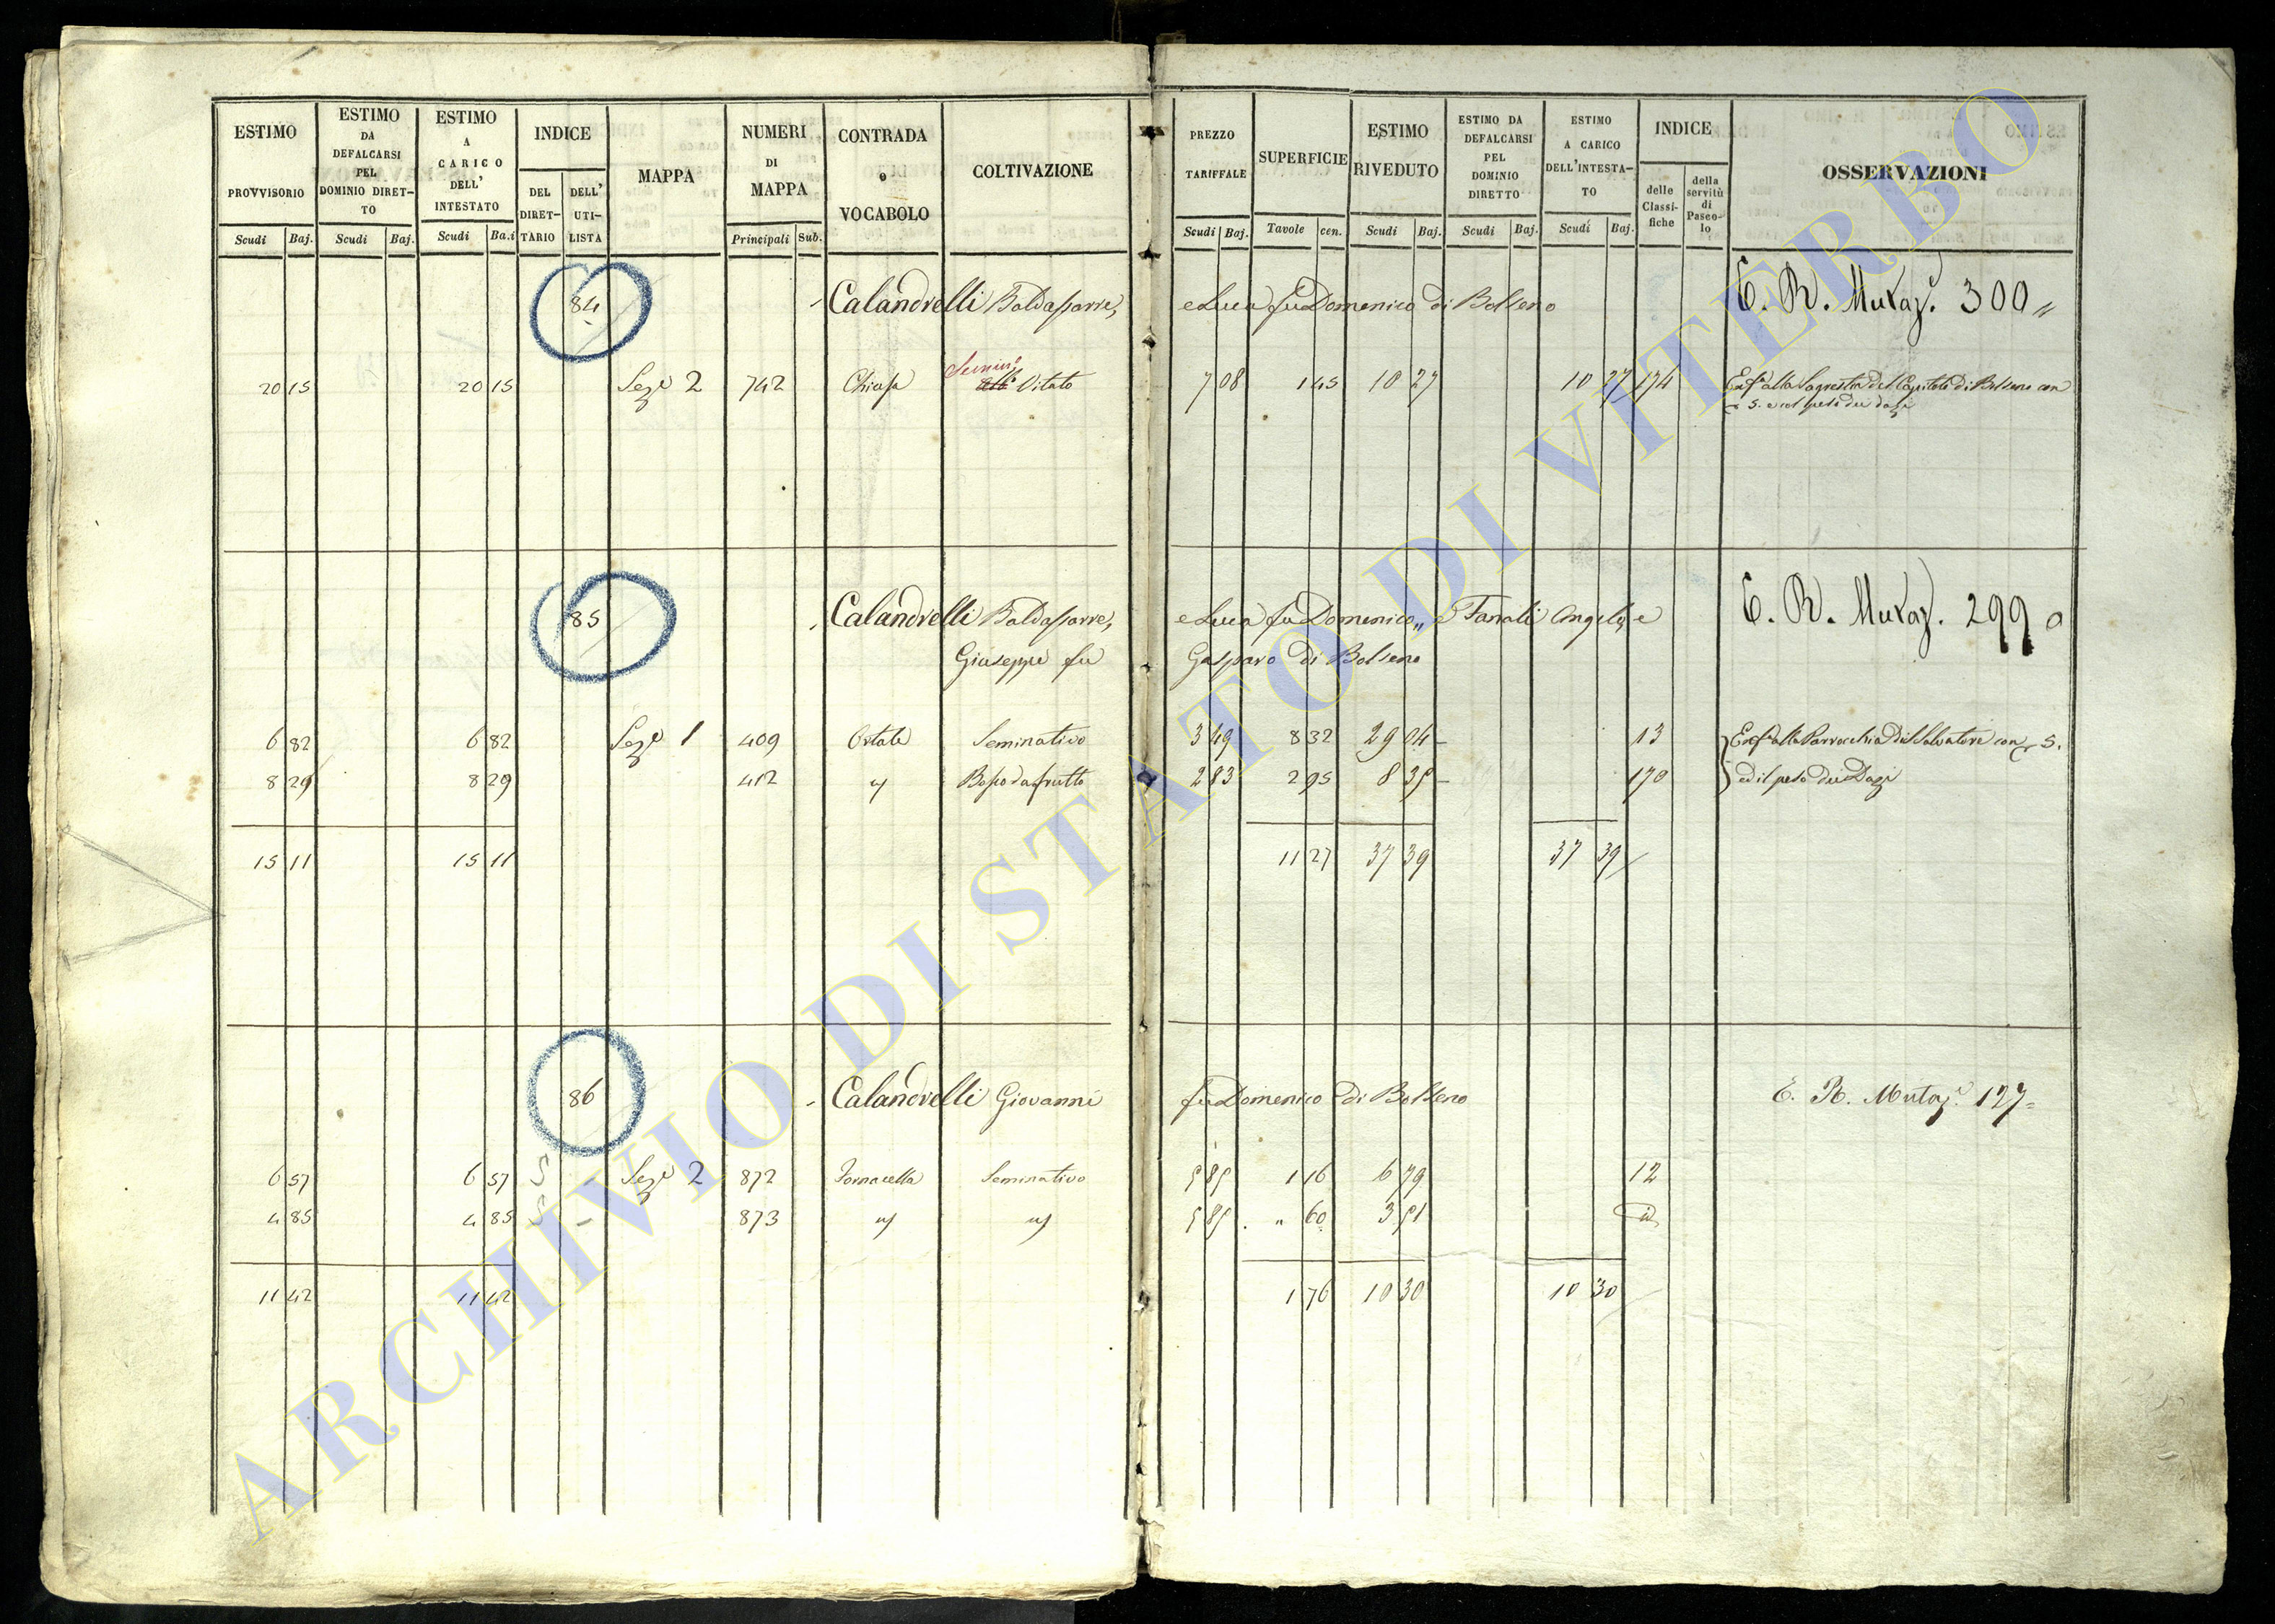 ESTIMO PROVVISORIO Scudi Baj.
ESTIMO DA DEFALCARSI PEL DOMINIO DIRET-TO Scudi Baj.
ESTIMO A CARICO DELL' INTESTATO Scudi Ba.i
INDICE DEL DIRET-TARIO DELL' UTI-LISTA
MAPPA
NUMERI DI MAPPA Principali Sub.
CONTRADA e VOCABOLO
COLTIVAZIONE
PREZZO TARIFFALE Scudi Baj.
SUPERFICIE Tavole cen.
ESTIMO RIVEDUTO Scudi Baj.
ESTIMO DA DEFALCARSI PEL DOMINIO DIRETTO Scudi Baj.
ESTIMO A CARICO DELL'INTESTA-TO Scudi Baj.
INDICE delle Classi-fiche della servitù di Pasco-lo
OSSERVAZIONI
84 Calandrelli Baldassarre, e Luca fu Domenico di Bolseno E. R. Mutaz.e 300 "
20 15 20 15 Sez.e 2 742 Chiusa Semin.o Vitato 7 08 1 45 10 27 10 27 174 Enf.a alla Sagrestia del Capitolo di Bolseno con
5. e col peso dei dazi
85 Calandrelli Baldassarre, e Luca fu Domenico, e Fanali Angelo, e E. R. Mutaz. 299
Giuseppe fu Gasparo di Bolseno
6 82 6 82 Sez.e 1 409 Ortale Seminativo 3 49 8 32 29 04 13 Enf.a alla Parrocchia del Salvatore con 5.
8 29 8 29 412 " Boso da frutto 2 83 2 95 8 35 170 ed il peso dei Dazi
15 11 15 11 11 27 37 39 37 39
86 Calandrelli Giovanni fu Domenico di Bolseno E. R. Mutaz.e 127
6 57 6 57 S Sez.e 2 872 Fornacella Seminativo 5 85 1 16 6 79 12
4 85 4 85 S 873 " " 5 85 " 60 3 51 id
11 42 11 42 1 76 10 30 10 30
ARCHIVIO DI STATO DI VITERBO